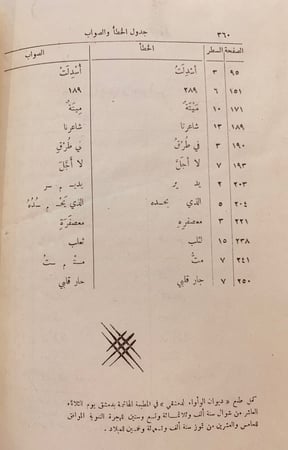 ٣٦٠ جدول الخطأ والصواب
الصفحة السطر الخطأ الصواب
٩٥ ٣ أَسْدِلَتْ أُسْدِلَتْ
١٥١ ٦ ٢٨٩ ١٨٩
١٧١ ١٠ مَيْتَةً مِيتَةً
١٨٩ ١٣ شاعرنا شاعرنا
١٩٠ ٣ في طَرُقٍ في طُرُقٍ
١٩٣ ٧ لا أَجَلَّ لا أَجَلَ
٢٠٣ ٢ يد ير يديـ م ـر
٢٠٤ ٥ الذي يحسده الذي يَحْـ م ـسُدُهُ
٢٢١ ٣ معصفره معصفَرَة
٢٣٨ ١٥ لثلب ثعلب
٢٤١ ٧ متُّ متـ م ـتُ
٢٥٠ ٧ جار قلبي حار قلبي
كمل طبع « ديوان الوأواء الدمشقي » في المطبعة الهاشمية بدمشق يوم الثلاثاء
العاشر من شوال سنة ألف وثلاثمائة وتسع وستين للهجرة النبوية الموافق
للخامس والعشرين من تموز سنة ألف وتسعمائة وخمسين للميلاد .